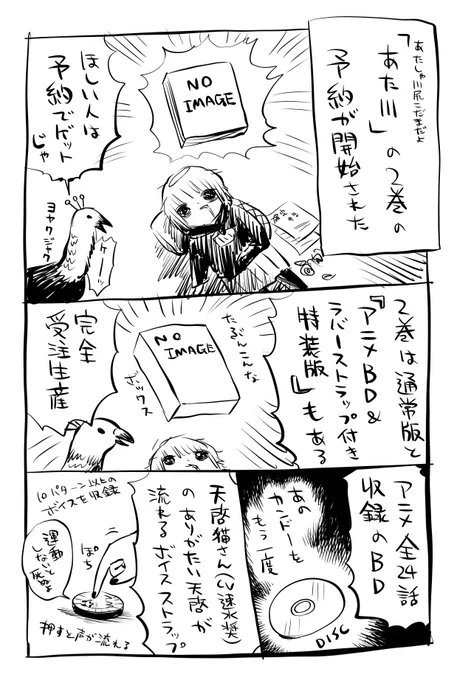 あたしゃ川尻こだまだよ
「あた川」の2巻の
予約が開始された
NO
IMAGE
ほしい人は
予約でゲット
じゃ
ヨヤクジャク
ケーーッ
2巻は通常版と
『アニメBD&
ラバーストラップ付き
特装版』もある
NO
IMAGE
たぶんこんな
ボックス
完全
受注生産
アニメ全24話
収録のBD
あの
カンドーを
もう一度
DISC
天啓猫さん(CV速水奨)
のありがたい天啓が
流れるボイスストラップ
10パターン以上の
ボイスを収録
ぽち
運動
しないと
死ぬよ
押すと声が流れる